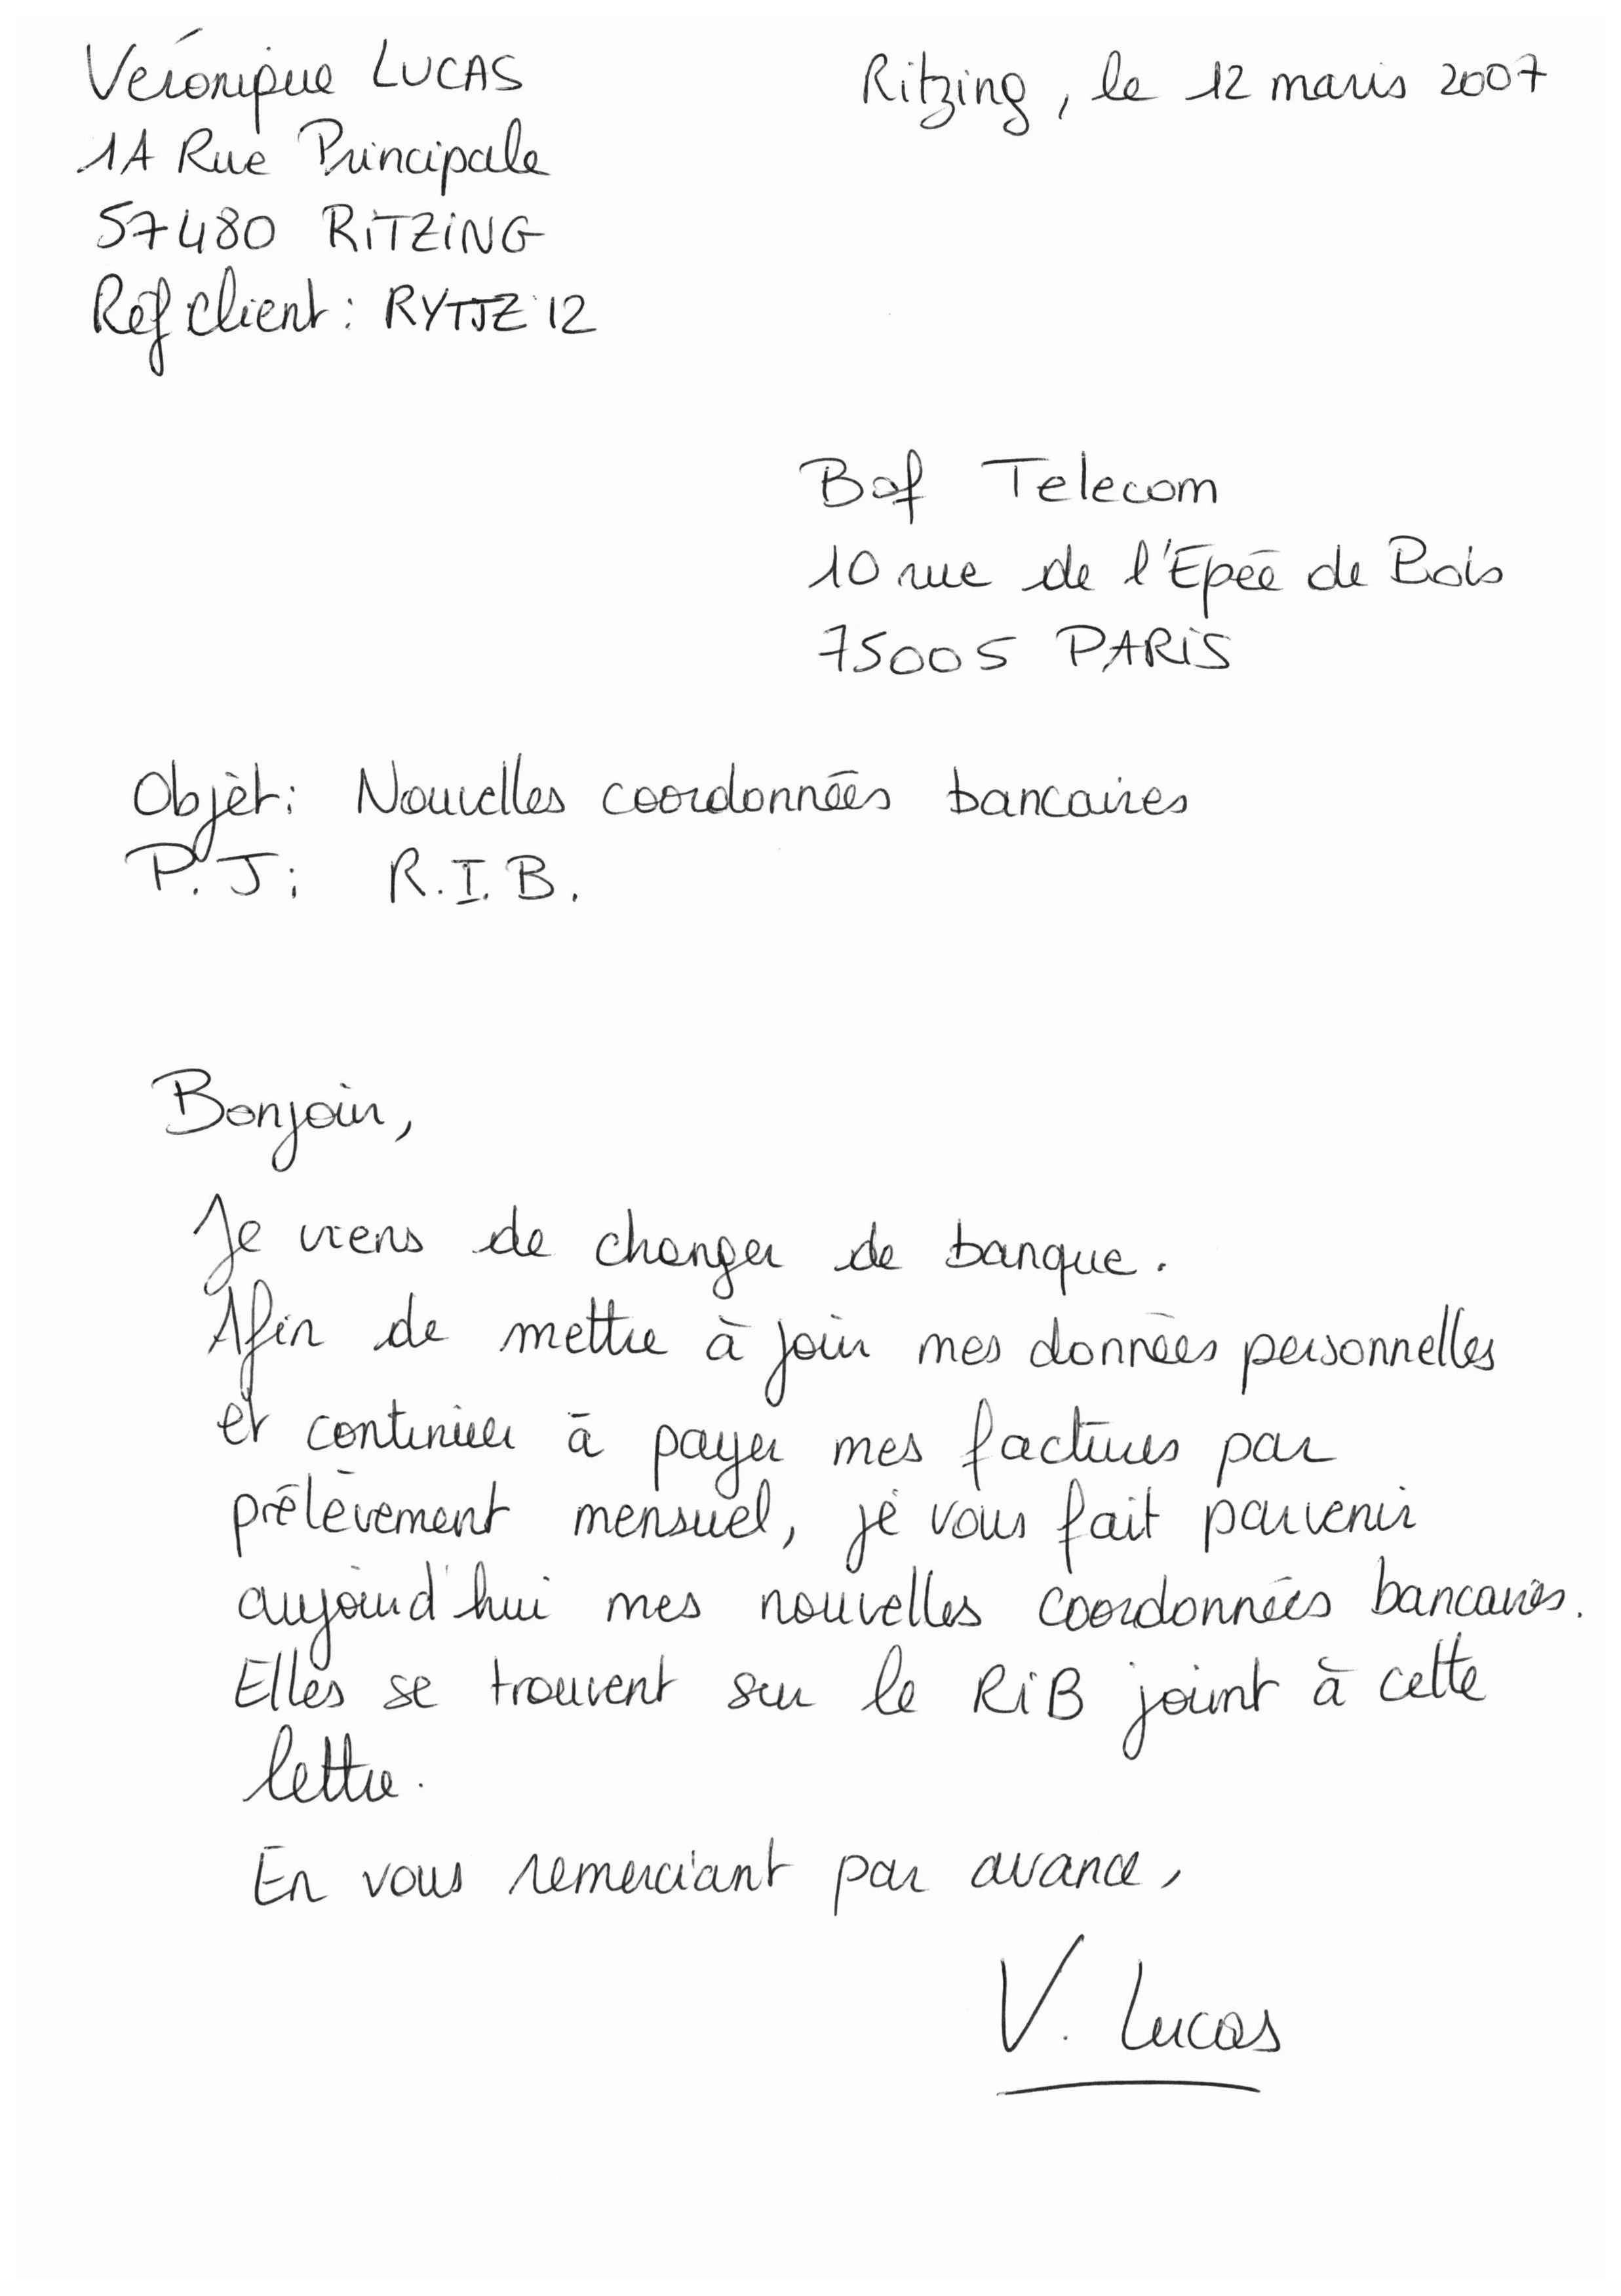 Véronique LUCAS
1A Rue Principale
57480 RITZING
Réf client : RYTJZ12
Ritzing, le 12 mars 2007
Bof Telecom
10 rue de l'Epée de Bois
75005 PARIS
Objet : Nouvelles coordonnées bancaires
P.J : R.I.B.
Bonjour,
Je viens de changer de banque.
Afin de mettre à jour mes données personnelles
et continuer à payer mes factures par
prélèvement mensuel, je vous fait parvenir
aujourd'hui mes nouvelles coordonnées bancaires.
Elles se trouvent sur le RIB joint à cette
lettre.
En vous remerciant par avance,
V. Lucas